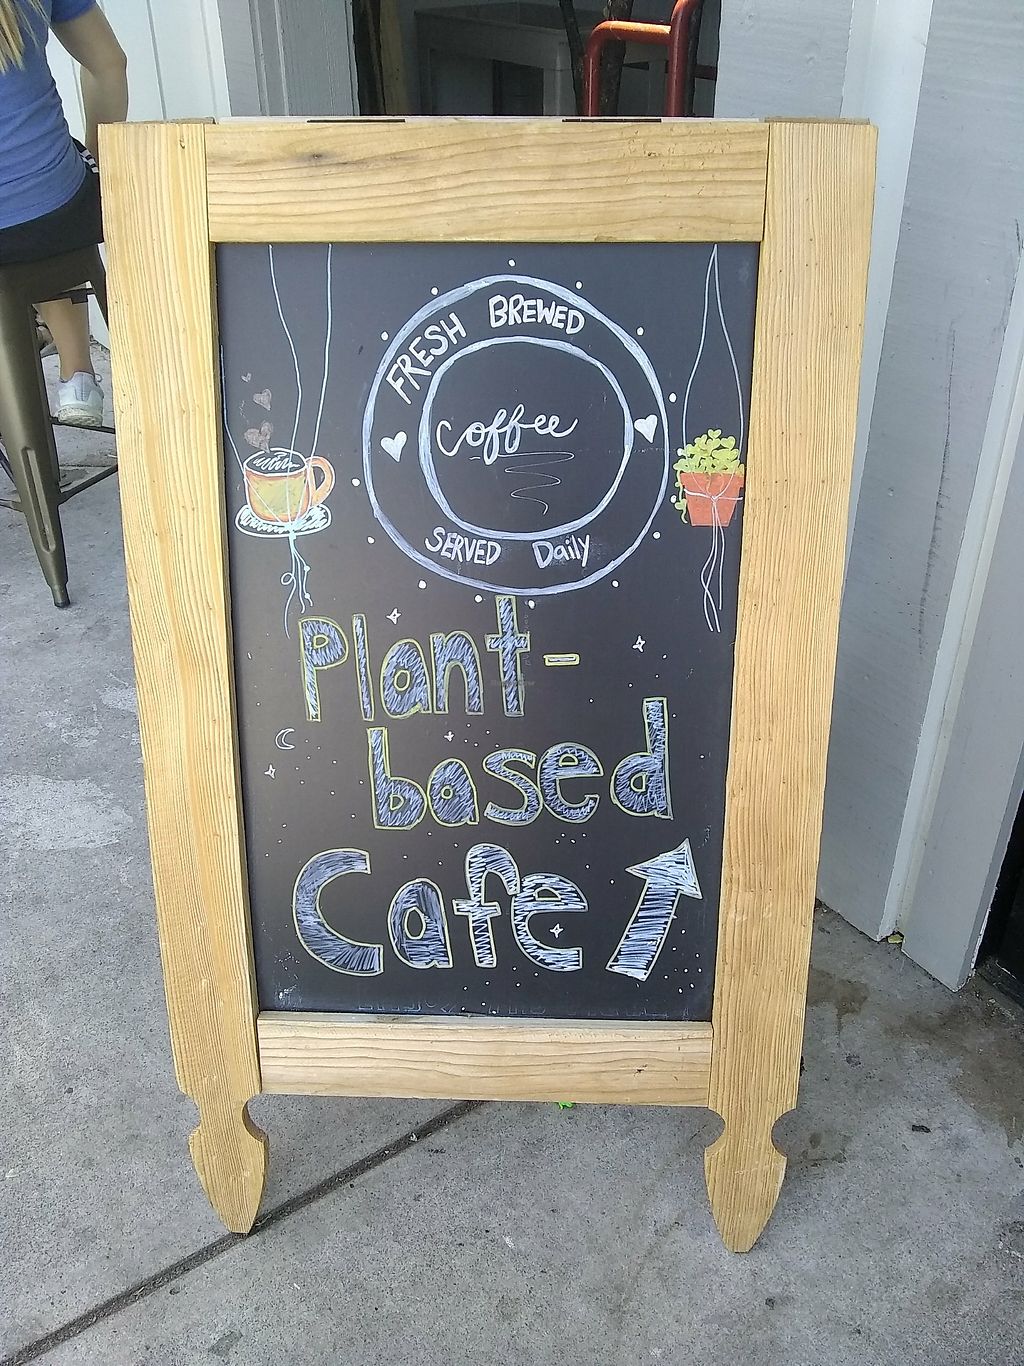 FRESH BREWED
coffee
SERVED Daily
Plant-
based
Cafe